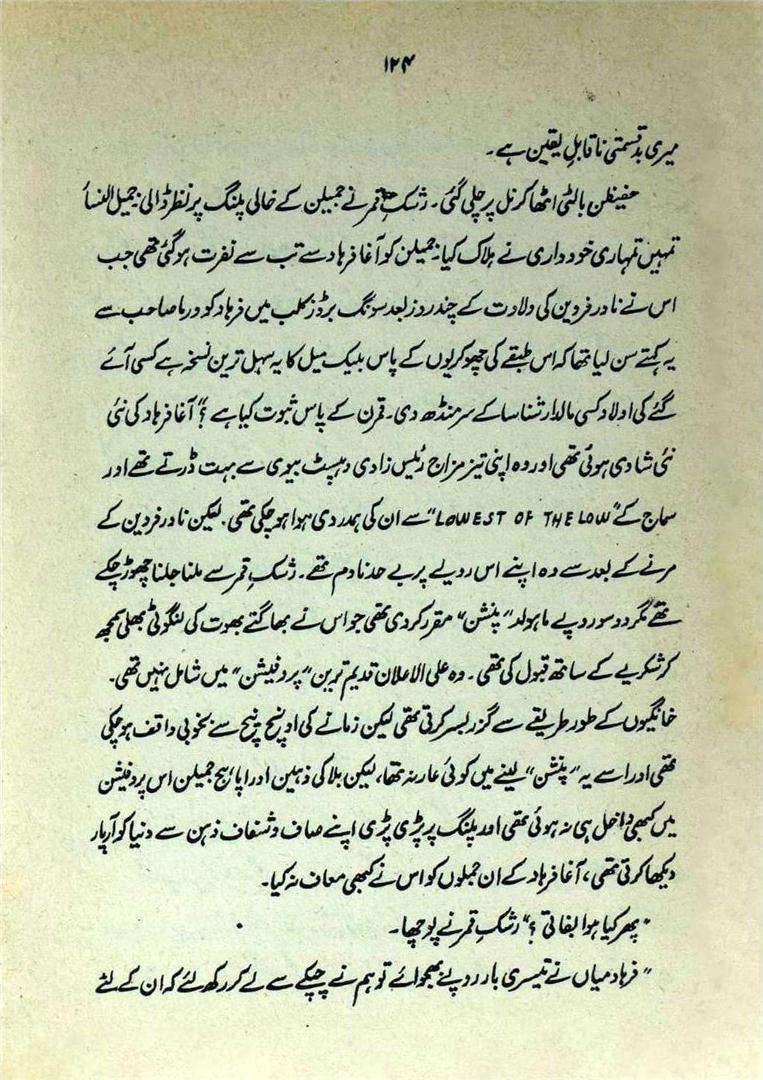 ۱۲۴
میری بدقسمتی ناقابلِ یقین ہے۔
حفیظن بالٹی اٹھا کر نل پر چلی گئی۔ رشکِ قمر نے جمیلن کے خالی پلنگ پر نظر ڈالی۔ جمیل النسأ
تمہیں تمہاری خودداری نے ہلاک کیا۔ جمیلن کو آغا فرہاد سے تب سے نفرت ہوگئی تھی جب
اس نے نادر فردین کی ولادت کے چند روز بعد سونگ برڈز کلب میں فرہاد کو ورما صاحب سے
یہ کہتے سن لیا تھا کہ اس طبقے کی چھوکریوں کے پاس بلیک میل کا یہ سہل ترین نسخہ ہے کسی آئے
گئے کی اولاد کسی مالدار شناسا کے سر منڈھ دی۔ قمرن کے پاس ثبوت کیا ہے؟" آغا فرہاد کی نئی
نئی شادی ہوئی تھی اور وہ اپنی تیز مزاج رئیس زادی دہیسٹ بیوی سے بہت ڈرتے تھے اور
سماج کے "LOWEST OF THE LOW" سے ان کی ہمدردی ہوا ہوچکی تھی۔ لیکن نادر فردین کے
مرنے کے بعد سے وہ اپنے اس رویے پر بے حد نادم تھے۔ رشکِ قمر سے ملنا جلنا چھوڑ چکے
تھے مگر دو سو روپے ماہوار "پنشن" مقرر کردی تھی جو اس نے بھاگتے بھوت کی لنگوٹی بھلی سمجھ
کر شکریے کے ساتھ قبول کی تھی۔ وہ علی الاعلان قدیم ترین "پروفیشن" میں شامل نہیں تھی۔
خانگیوں کے طور طریقے سے گزر بسر کرتی تھی لیکن زمانے کی اونچ نیچ سے بخوبی واقف ہوچکی
تھی اور اسے یہ "پنشن" لینے میں کوئی عار نہ تھا، لیکن بلا کی ذہین اور اپاہج جمیلن اس پروفیشن
میں کبھی داخل ہی نہ ہوئی تھی اور پلنگ پر پڑی پڑی اپنے صاف و شفاف ذہن سے دنیا کو آر پار
دیکھا کرتی تھی، آغا فرہاد کے ان جملوں کو اس نے کبھی معاف نہ کیا۔
"پھر کیا ہوا بفاتی؟" رشکِ قمر نے پوچھا۔
"فرہاد میاں نے تیسری بار روپے بھجوائے تو ہم نے چپکے سے لے کر رکھ لئے کہ ان کے لئے